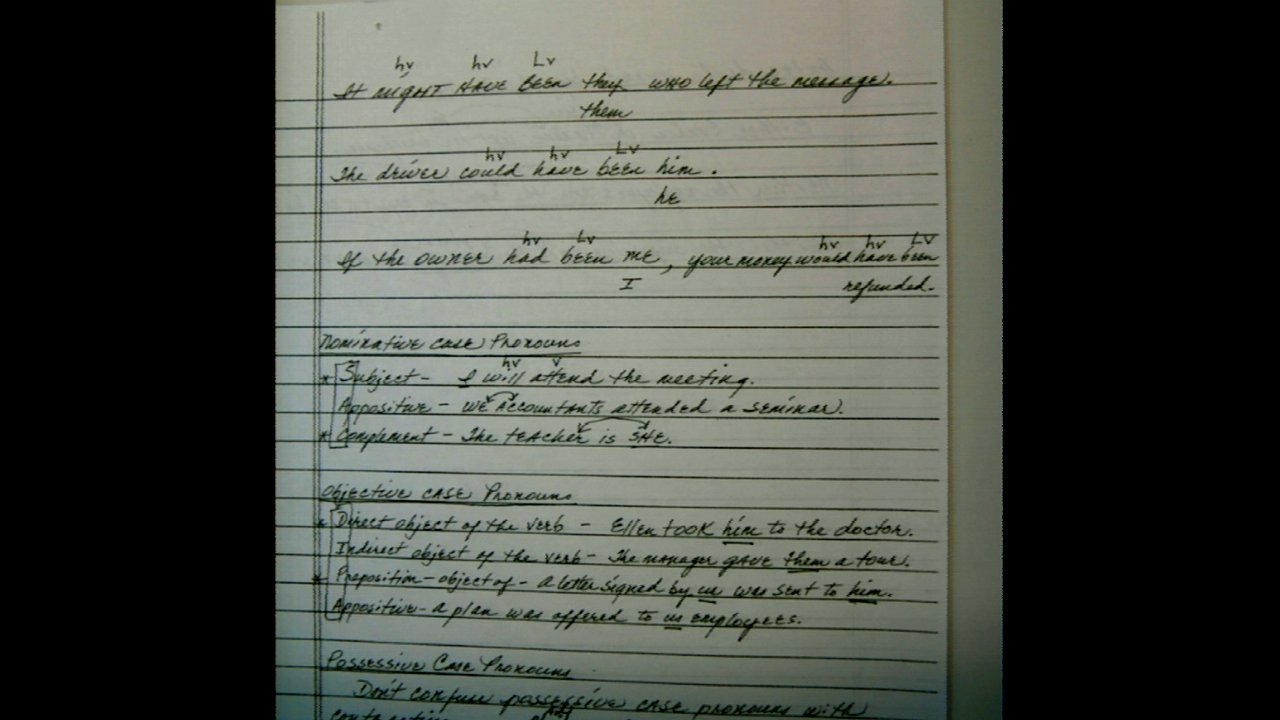 hv hv Lv
It might have been they who left the message.
them
hv hv Lv
The driver could have been him.
he
hv Lv hv hv LV
If the owner had been me, your money would have been
I refunded.
Nominative Case Pronouns
hv v
* Subject - I will attend the meeting.
Appositive - We accountants attended a seminar.
* Complement - The teacher is she.
Objective Case Pronouns
* Direct object of the verb - Ellen took him to the doctor.
Indirect object of the verb - The manager gave them a tour.
* Preposition - object of - A letter signed by us was sent to him.
Appositive - a plan was offered to us employees.
Possessive Case Pronouns
Don't confuse possessive case pronouns with